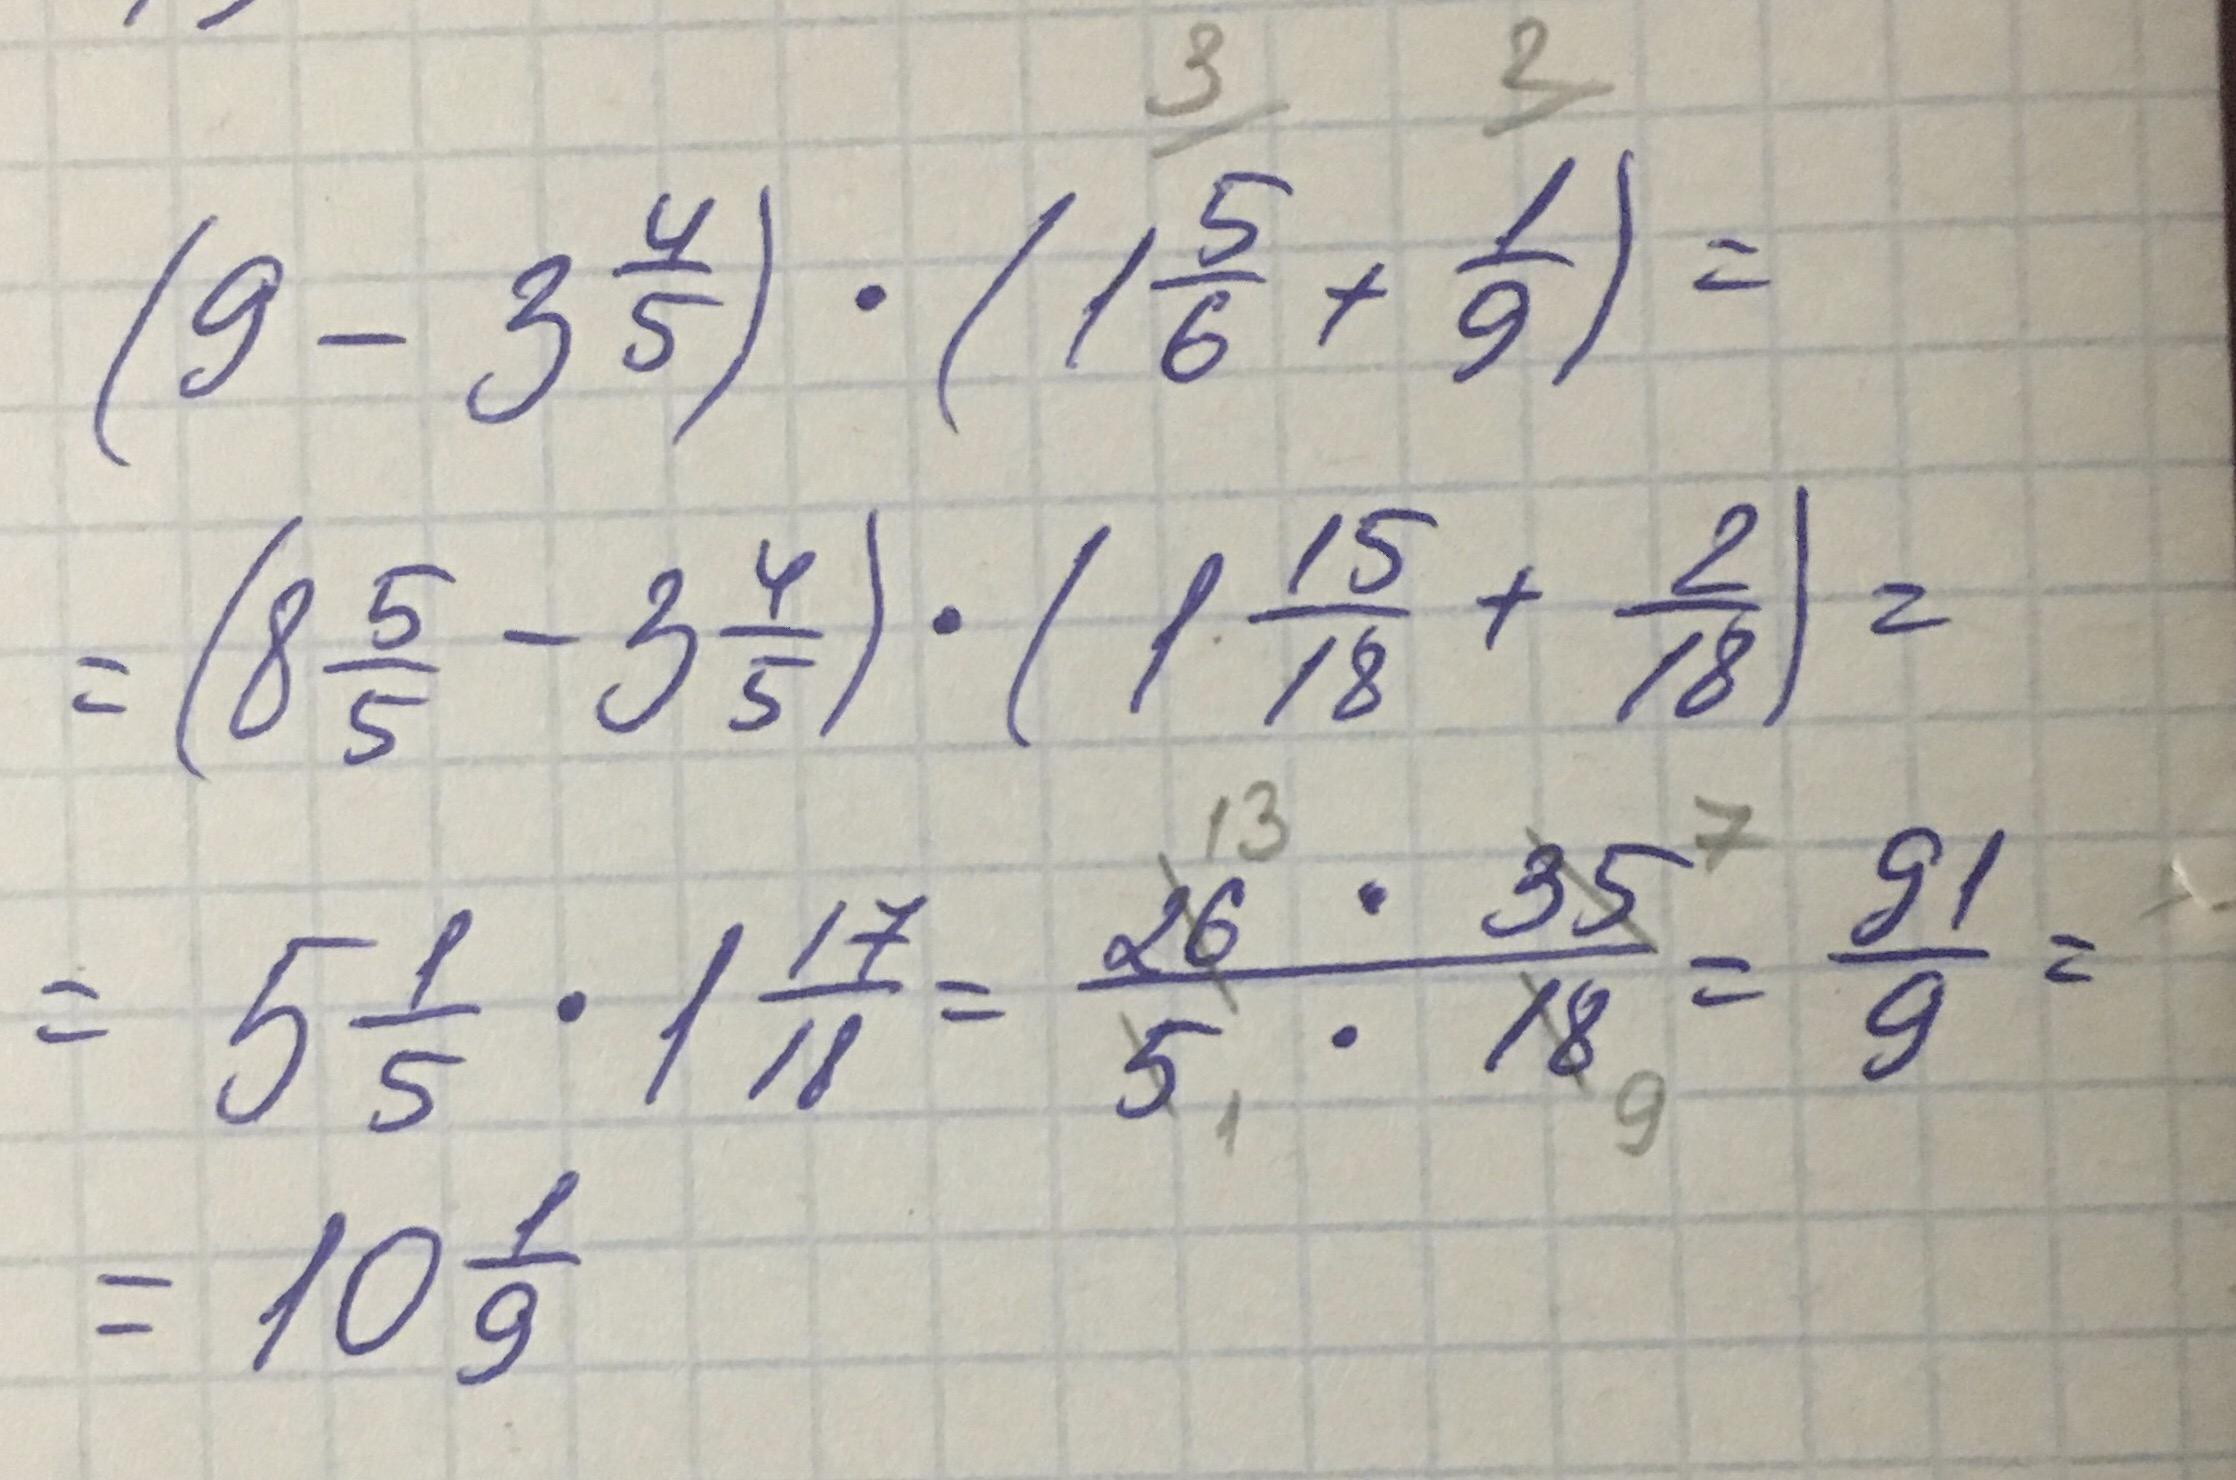 3 2
(9 - 3 4/5) · (1 5/6 + 1/9) =
= (8 5/5 - 3 4/5) · (1 15/18 + 2/18) =
13 7
= 5 1/5 · 1 17/18 = 26 · 35 / 5 · 18 = 91/9 =
1 9
= 10 1/9